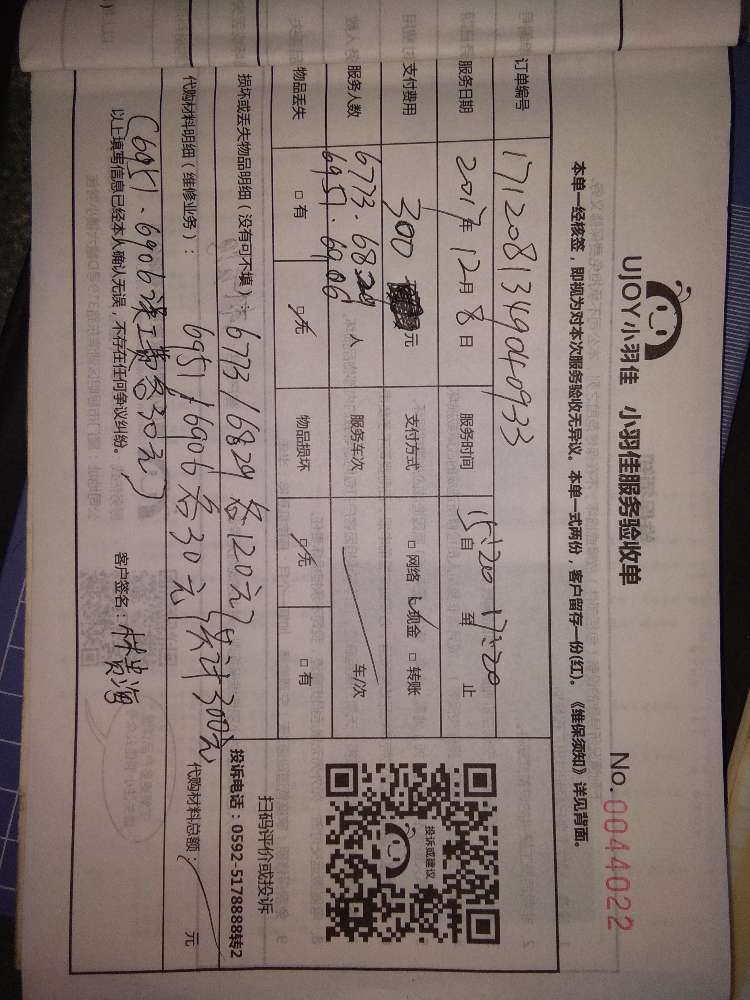 UJOY小羽佳 小羽佳服务验收单
No.0044022
本单一经核签，即视为对本次服务验收无异议。本单一式两份，客户留存一份(红)。《维保须知》详见背面。
订单编号 1712081349040933
服务日期 2017年 12月 8日 服务时间 15:20 自 至 17:20 止
支付费用 300 元 支付方式 □网络 ☑现金 □转账
服务人数 6773.6829 6951.6906 人 服务车次 车/次
物品丢失 □有 ☑无 物品损坏 ☑无 □有
投诉或建议
扫码评价或投诉
投诉电话：0592-5178888转2
损坏或丢失物品明细（没有可不填）： 6773/6829各120元
6951/6906各30元 共计300元
代购材料明细（维修业务）： 代购材料总额： 元
(6951.6906误工费各30元)
以上填写信息已经本人确认无误，不存在任何争议纠纷。 客户签名：